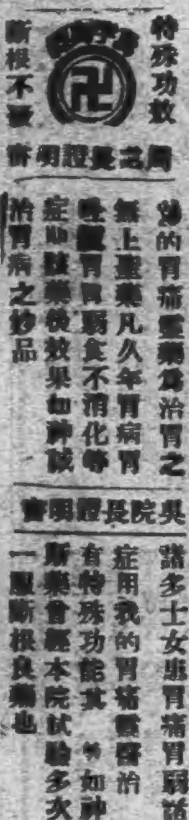 特殊功效
斷根不發
周院長證明書
我的胃痛靈藥爲治胃之
無上聖藥凡久年胃病胃
胃弱食不消化等
症服該藥後效果如神誠
治胃病之妙品
吳院長證明書
諸多士女患胃痛胃弱諸
症用我的胃痛靈醫治
有特殊功能其 如神
斯藥曾經本院試驗多次
一服斷根良藥也